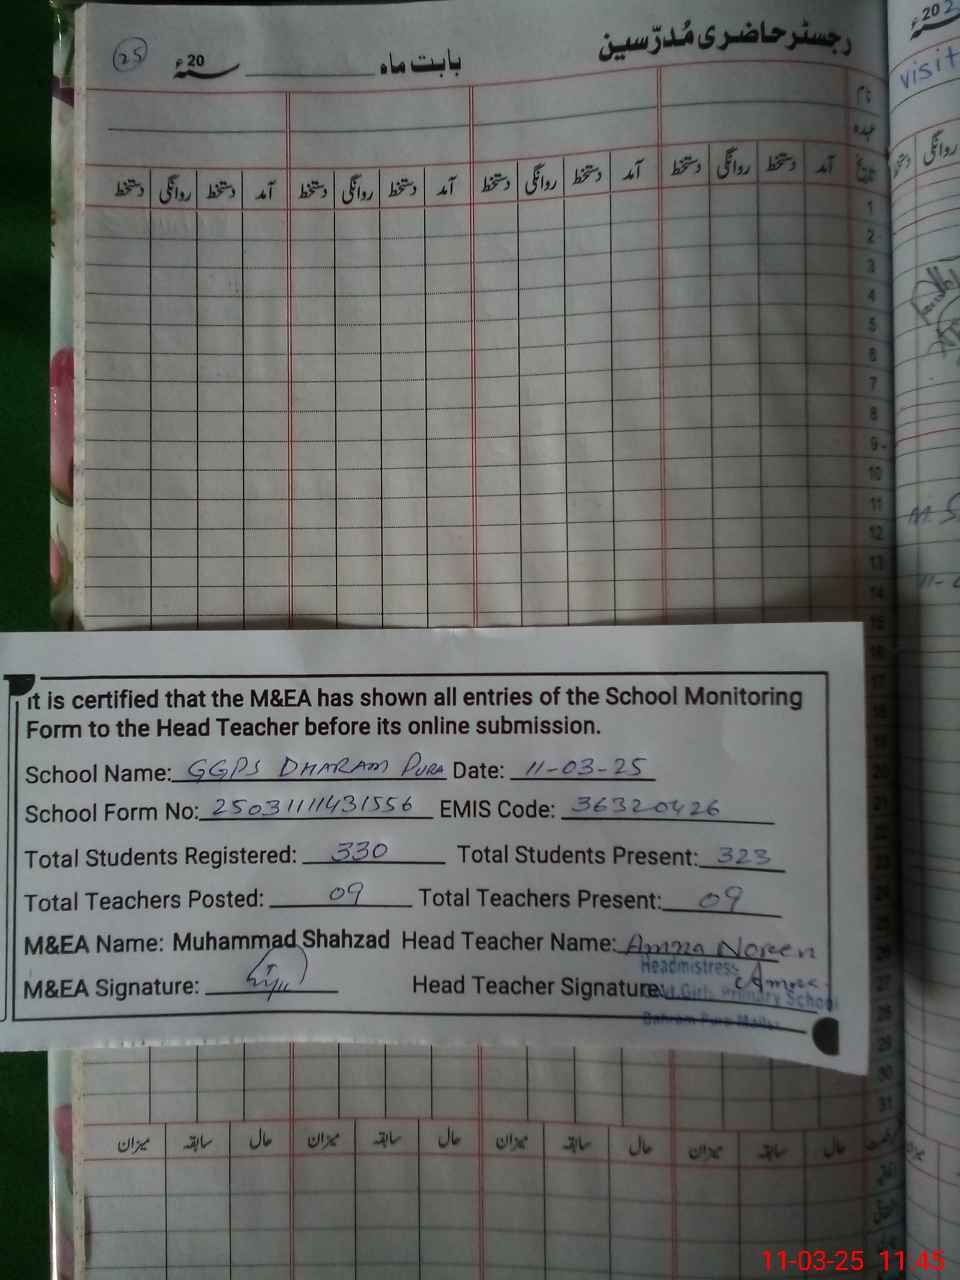 رجسٹر حاضری مُدرّسین
بابت ماہ ________ سنہ 20ء
25
202
visit
نام
عہدہ
تاریخ آمد دستخط روانگی دستخط آمد دستخط روانگی دستخط آمد دستخط روانگی دستخط آمد دستخط روانگی دستخط
روانگی دستخط
1
2
3
4
5
6
7
8
9
10
11
12
13
14
15
16
17
18
19
20
21
22
23
24
25
26
27
28
29
30
31
It is certified that the M&EA has shown all entries of the School Monitoring
Form to the Head Teacher before its online submission.
School Name: GGPS DHARAM PURA Date: 11-03-25
School Form No: 25031111431556 EMIS Code: 36320426
Total Students Registered: 330 Total Students Present: 323
Total Teachers Posted: 09 Total Teachers Present: 09
M&EA Name: Muhammad Shahzad Head Teacher Name: Amna Noreen
Headmistress
M&EA Signature: Head Teacher Signature: Amna
Govt. Girls Primary School
Dahram Pura Mailsi
حال سابقہ میزان حال سابقہ میزان حال سابقہ میزان حال سابقہ میزان
میزان
11-03-25 11:45